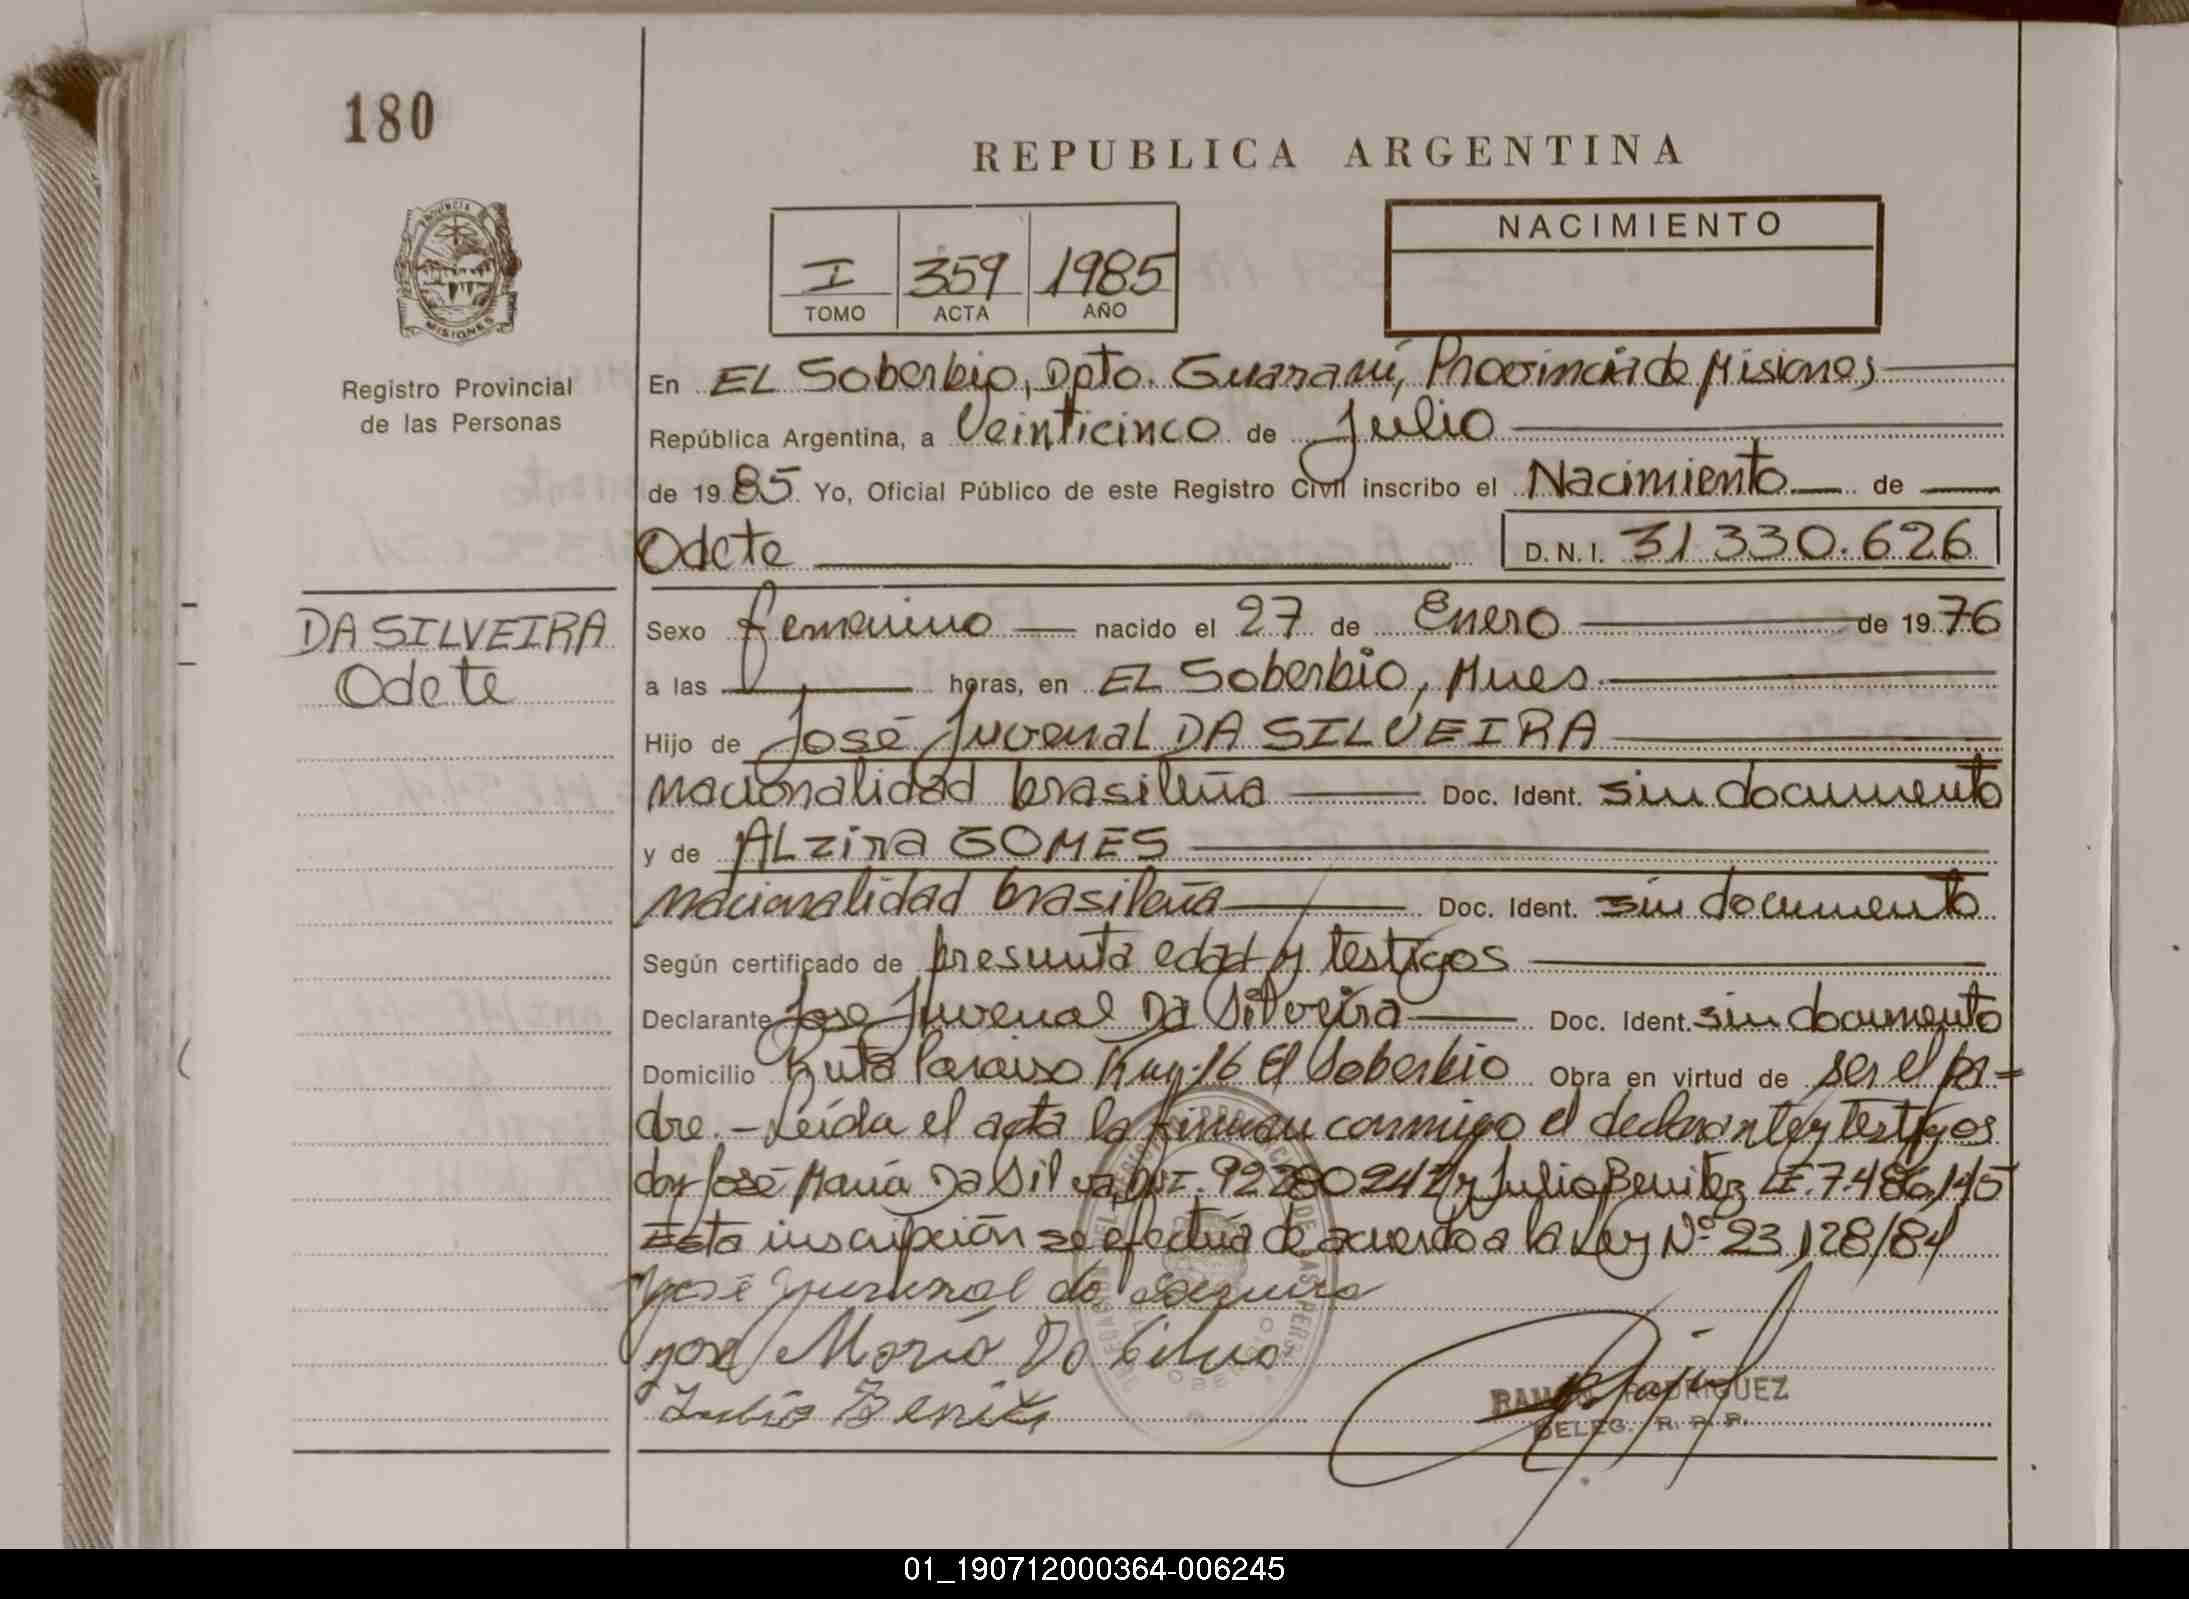 180
REPUBLICA ARGENTINA
PROVINCIA DE
MISIONES
Registro Provincial
de las Personas
I 359 1985
TOMO ACTA AÑO
NACIMIENTO
En EL Soberbio, Dpto. Guaraní, Provincia de Misiones
República Argentina, a Veinticinco de Julio
de 19 85 Yo, Oficial Público de este Registro Civil inscribo el Nacimiento de
Odete D.N.I. 31 330.626
DA SILVEIRA
Odete
Sexo femenino nacido el 27 de Enero de 19 76
a las horas, en EL Soberbio, Mnes
Hijo de José Juvenal DA SILVEIRA
nacionalidad brasileña Doc. Ident. sin documento
y de ALzira GOMES
nacionalidad brasileña Doc. Ident. sin documento
Según certificado de presunta edad y testigos
Declarante José Juvenal Da Silveira Doc. Ident. sin documento
Domicilio Ruta Paraiso Km. 16 El Soberbio Obra en virtud de ser el pa=
dre. - Leída el acta la firman conmigo el declarante y testigos
don José María Da Silva, DNI. 92280242 y Julio Benitez LE. 7.486.145
Esta inscripción se efectúa de acuerdo a la Ley Nº 23,128/84
José Juvenal da
José María Da Silva
Julio Benitez
RAMON RODRIGUEZ
DELEG. R. P. P.
01_190712000364-006245